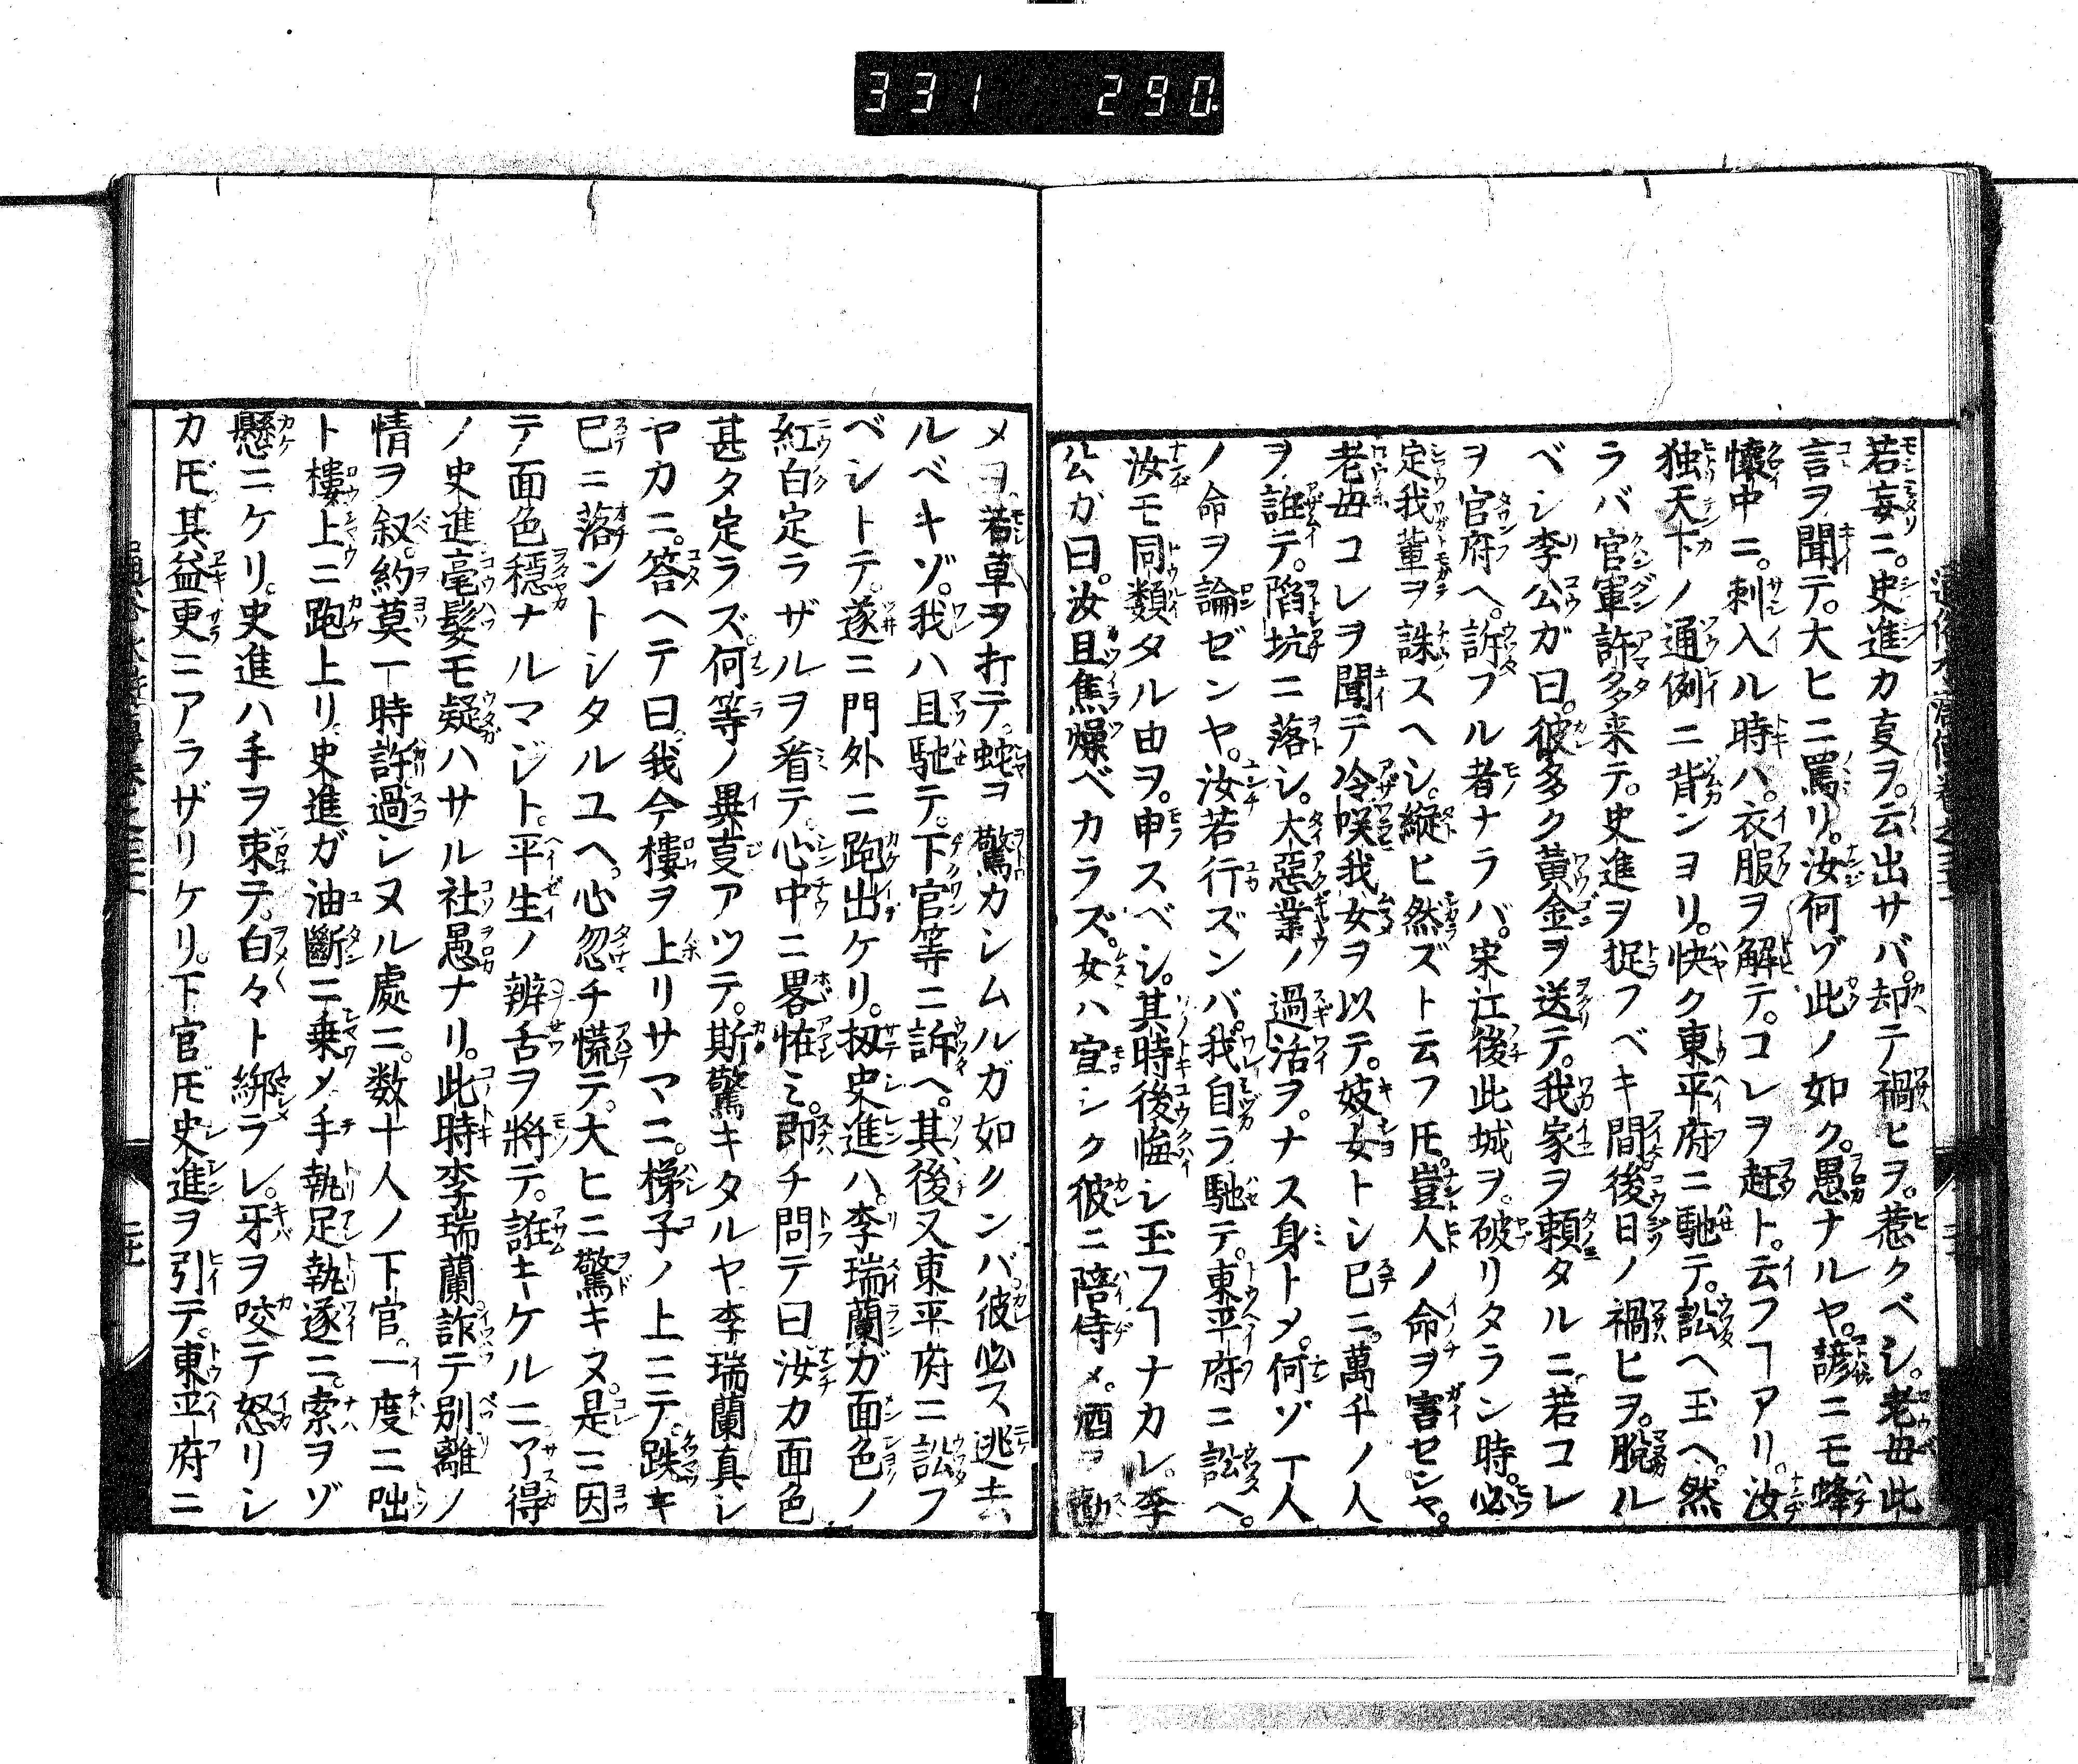 331 290.
若妄ニ。史進カ亙ヲ。云出サバ。却テ禍ヒヲ。惹クベシ。老母此
言ヲ聞テ。大ヒニ罵リ。汝何ゾ此ノ如ク。愚ナルヤ。諺ニモ蜂
懐中ニ。刺入ル時ハ。衣服ヲ解テ。コレヲ赶ト。云フヿアリ。汝
独天下ノ通例ニ背ンヨリ。快ク東平府ニ馳テ。訟ヘ玉ヘ。然
ラバ官軍許多来テ。史進ヲ捉フベキ間後日ノ禍ヒヲ。脱ル
ベシ李公ガ曰。彼多ク黄金ヲ送テ。我家ヲ頼タルニ。若コレ
ヲ官府ヘ。訴フル者ナラバ。宋江後此城ヲ破リタラン時。必
定我輩ヲ誅スヘシ。縦ヒ然ズト云フ𪜈。豈人ノ命ヲ害センヤ。
老母コレヲ聞テ冷咲我女ヲ以テ。妓女トシ已ニ。萬千ノ人
ヲ誑テ。陷坑ニ落シ。大惡業ノ過活ヲ。ナス身トメ。何ゾ一人
ノ命ヲ論ゼンヤ。汝若行ズンバ。我自ラ馳テ。東平府ニ訟ヘ。
汝モ同類タル由ヲ。申スベシ。其時後悔シ玉フヿナカレ。李
公ガ曰。汝且焦燥ベカラズ。女ハ宣シク彼ニ陪侍メ。酒ヲ勸
メヨ。若草ヲ打テ。蛇ヲ驚カシムルガ如クンバ。彼必ス逃去
ルベキゾ。我ハ且馳テ。下官等ニ訴ヘ。其後又東平府ニ訟フ
ベシトテ。遂ニ門外ニ跑出ケリ。扨史進ハ。李瑞蘭ガ面色ノ
紅白定ラザルヲ看テ。心中ニ畧恠ミ。即チ問テ曰。汝カ面色
甚タ定ラズ。何等ノ異亙アツテ。斯驚キタルヤ李瑞蘭真シ
ヤカニ。答ヘテ曰。我今樓ヲ上リサマニ。梯子ノ上ニテ。跌キ
已ニ落ントシタルユヘ。心忽チ慌テ。大ヒニ驚キヌ。是ニ因
テ面色穩ナルマジト。平生ノ辨舌ヲ將テ。誑キケルニゾ得
ノ史進毫髮モ疑ハサル社愚ナリ。此時李瑞蘭。詐テ別離ノ
情ヲ叙。約莫一時許過シヌル處ニ。数十人ノ下官。一度ニ咄
ト樓上ニ跑上リ。史進ガ油斷ニ乗メ手執足執遂ニ。索ヲゾ
懸ニケリ。史進ハ手ヲ束テ。白々ト綁ラレ。牙ヲ咬テ怒リシ
カ𪜈其益更ニアラザリケリ。下官𪜈史進ヲ引テ。東平府ニ